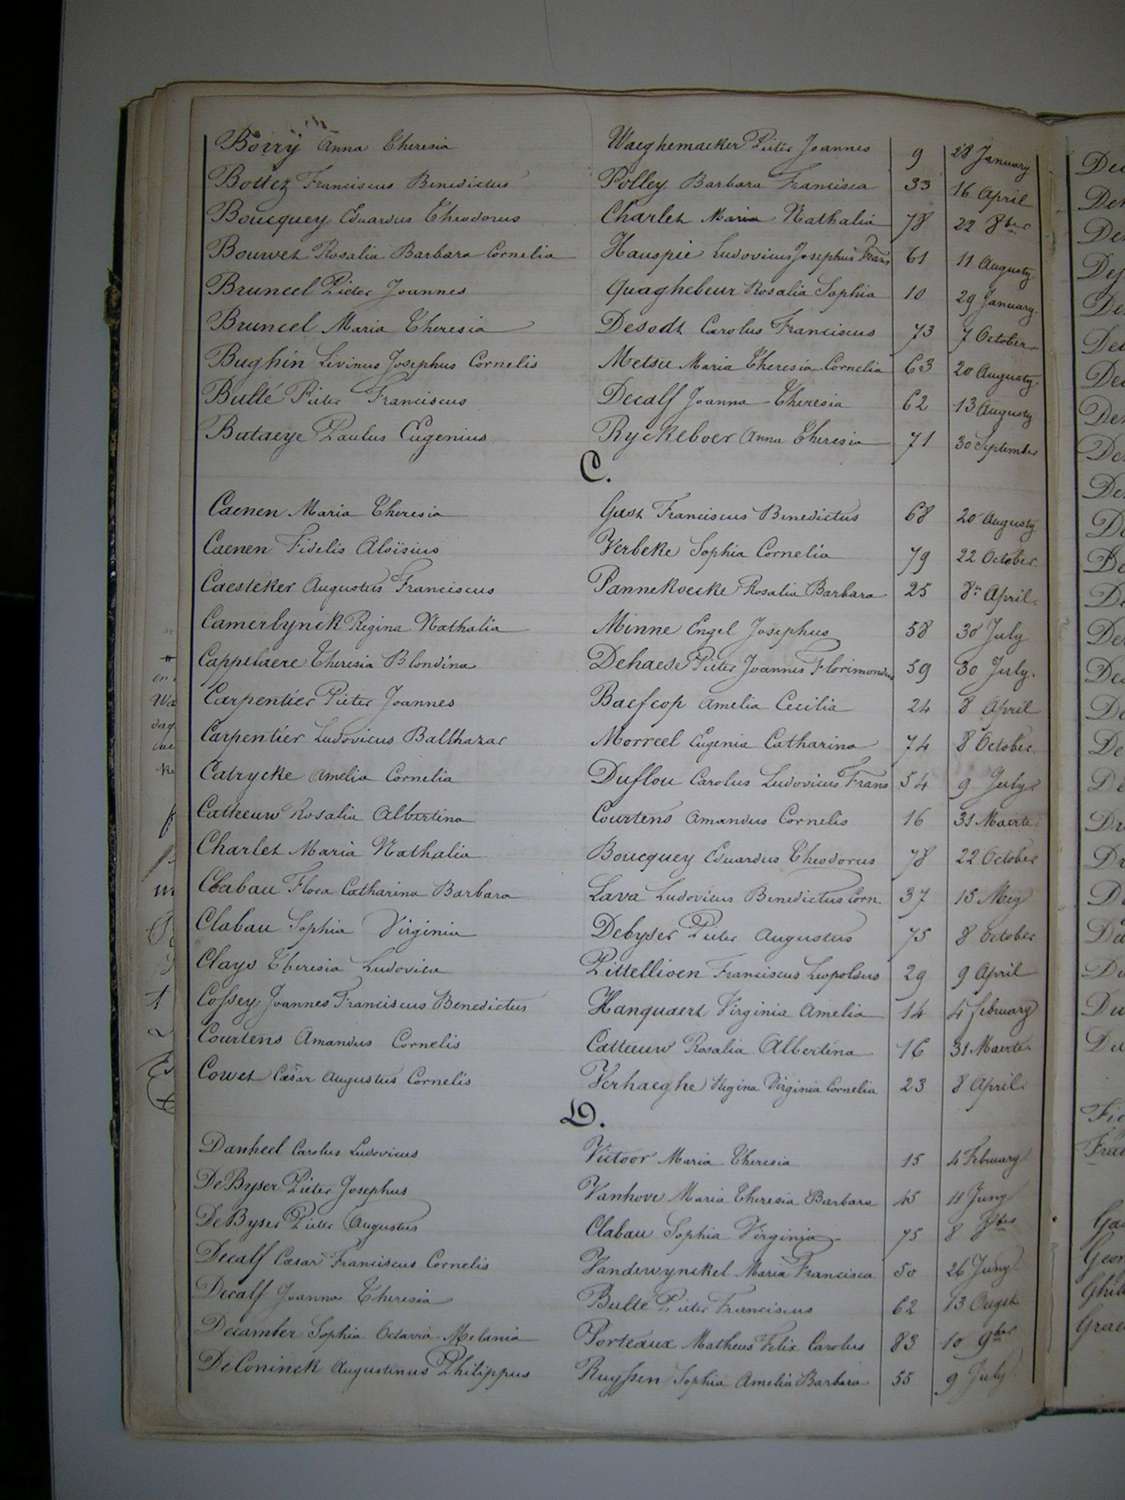 Boirÿ Anna Theresia Waeghemacker Pieter Joannes 9 28 January
Bottez Franciscus Benedictus Polley Barbara Francisca 33 16 April
Boucquey Eduardus Theodorus Charlet Maria Nathalia 78 22 8ber
Bouwet Rosalia Barbara Cornelia Hauspie Ludovicus Josephus Frans 61 11 Augusty
Bruneel Pieter Joannes Quaghebeur Rosalia Sophia 10 29 January
Bruneel Maria Theresia Desodt Carolus Franciscus 73 7 October
Bughin Livinus Josephus Cornelis Metsu Maria Theresia Cornelia 63 20 Augusty
Bulté Pieter Franciscus Decalf Joanna Theresia 62 13 Augusty
Bataeye Paulus Eugenius Ryckeboer Anna Theresia 71 30 September
C.
Caenen Maria Theresia Gust Franciscus Benedictus 68 20 Augusty
Caenen Fidelis Aloïsius Verbeke Sophia Cornelia 79 22 October
Caesteker Augustus Franciscus Pannekoecke Rosalia Barbara 25 8n April
Camerlynck Regina Nathalia Minne Engel Josephus 58 30 July
Cappelaere Theresia Blondina Dehaese Pieter Joannes Florimondus 59 30 July
Carpentier Pieter Joannes Baefcop Amelia Cecilia 24 8 April
Carpentier Ludovicus Balthazar Morreel Eugenia Catharina 74 8 October
Catrycke Amelia Cornelia Duflou Carolus Ludovicus Frans 54 9 July
Catteeuw Rosalia Albertina Courtens Amandus Cornelis 16 31 Maerte
Charlet Maria Nathalia Boucquey Eduardus Theodorus 78 22 October
Clabau Flora Catharina Barbara Lava Ludovicus Benedictus Corn. 37 15 Mey
Clabau Sophia Virginia Debyser Pieter Augustus 75 8 October
Clays Theresia Ludovica Pittellioen Franciscus Leopoldus 29 9 April
Cossey Joannes Franciscus Benedictus Hanquaert Virginia Amelia 14 4 february
Courtens Amandus Cornelis Catteeuw Rosalia Albertina 16 31 Maerte
Couvet Cæsar Augustus Cornelis Verhaeghe Regina Virginia Cornelia 23 8 April
D.
Danheel Carolus Ludovicus Victoor Maria Theresia 15 4 February
De Byser Pieter Josephus Vanhove Maria Theresia Barbara 45 11 Juny
De Byser Pieter Augustus Clabau Sophia Virginia 75 8
Decalf Cæsar Franciscus Cornelis Vandewynckel Maria Francisca 50 26 Juny
Decalf Joanna Theresia Bulté Pieter Franciscus 62 13 Ougst
Decamber Sophia Octavia Melania Porteaux Matheus Felix Carolus 83 10 9ber
De Coninck Augustinus Philippus Ruyssen Sophia Amelia Barbara 55 9 July